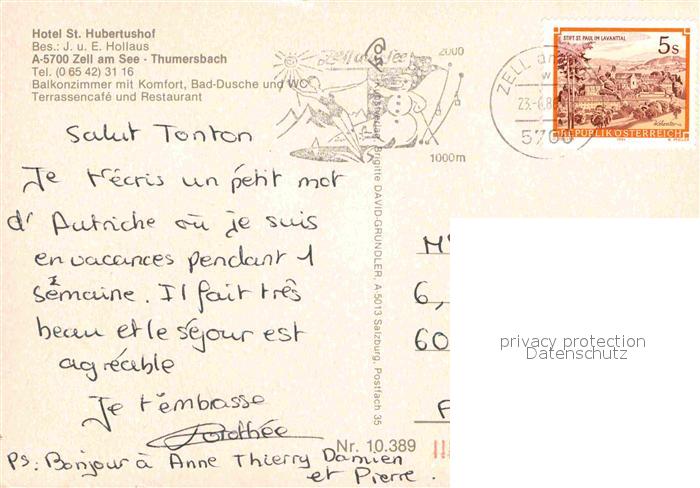 Hotel St. Hubertushof
Bes.: J. u. E. Hollaus
A-5700 Zell am See - Thumersbach
Tel. (0 65 42) 31 16
Balkonzimmer mit Komfort, Bad-Dusche und WC
Terrassencafé und Restaurant
Zell am See
2000
1000m
ZELL am
23.-
5700
STIFT ST. PAUL IM LAVANTTAL
5s
REPUBLIK ÖSTERREICH
Salut Tonton
Je t'écris un petit mot
d'Autriche où je suis
en vacances pendant 1
semaine. Il fait très
beau et le séjour est
agréable
Je t'embrasse
Dorothée
PS: Bonjour à Anne Thierry Damien
et Pierre.
Brigitte DAVID-GRÜNDLER, A-5013 Salzburg, Postfach 35
Nr. 10.389
6,
60
privacy protection
Datenschutz